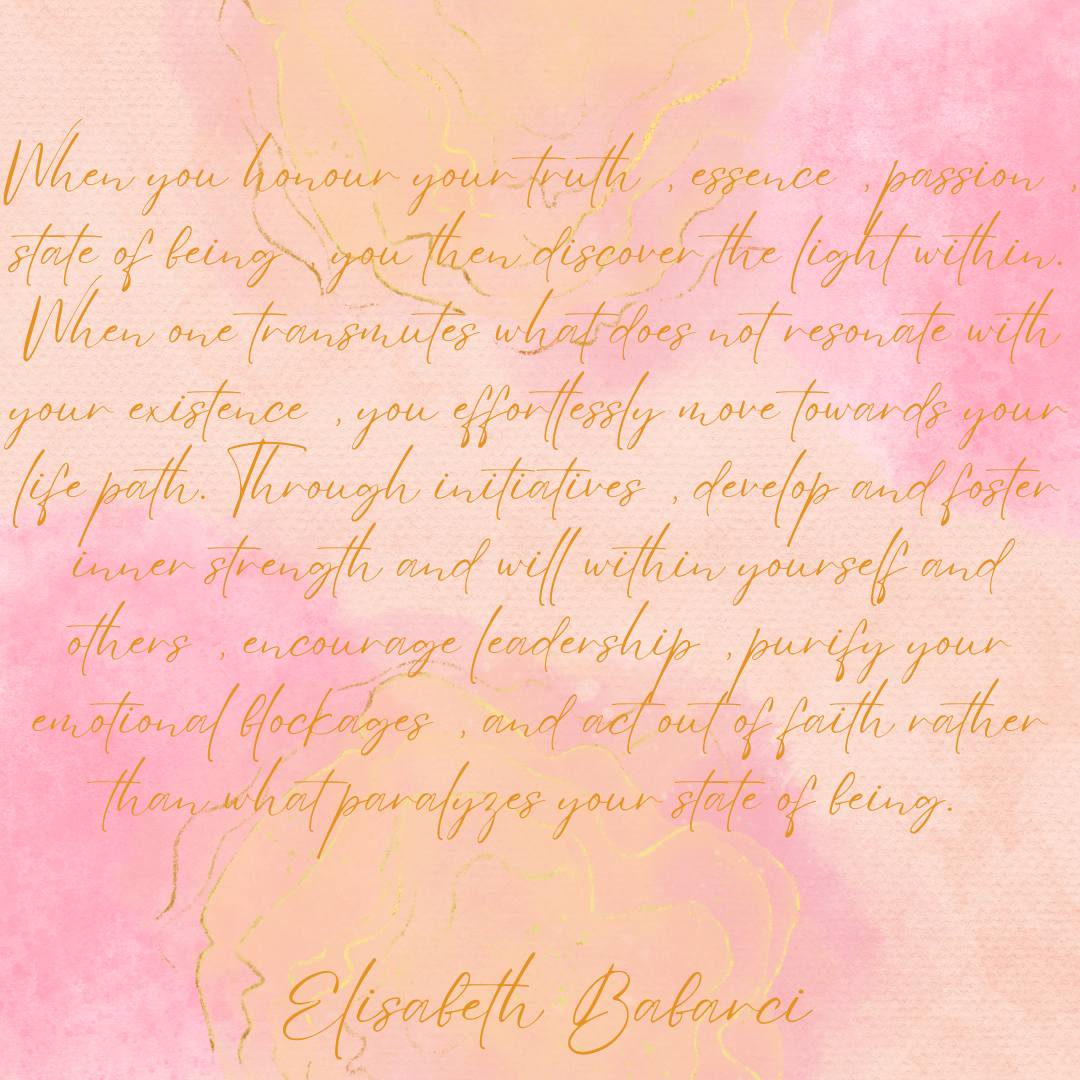 When you honour your truth , essence , passion ,
state of being , you then discover the light within.
When one transmutes what does not resonate with
your existence , you effortlessly move towards your
life path. Through initiatives , develop and foster
inner strength and will within yourself and
others , encourage leadership , purify your
emotional blockages , and act out of faith rather
than what paralyzes your state of being.
Elisabeth Babarci